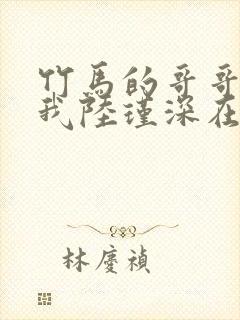 竹馬的哥哥
我陸瑾深在
林慶禎